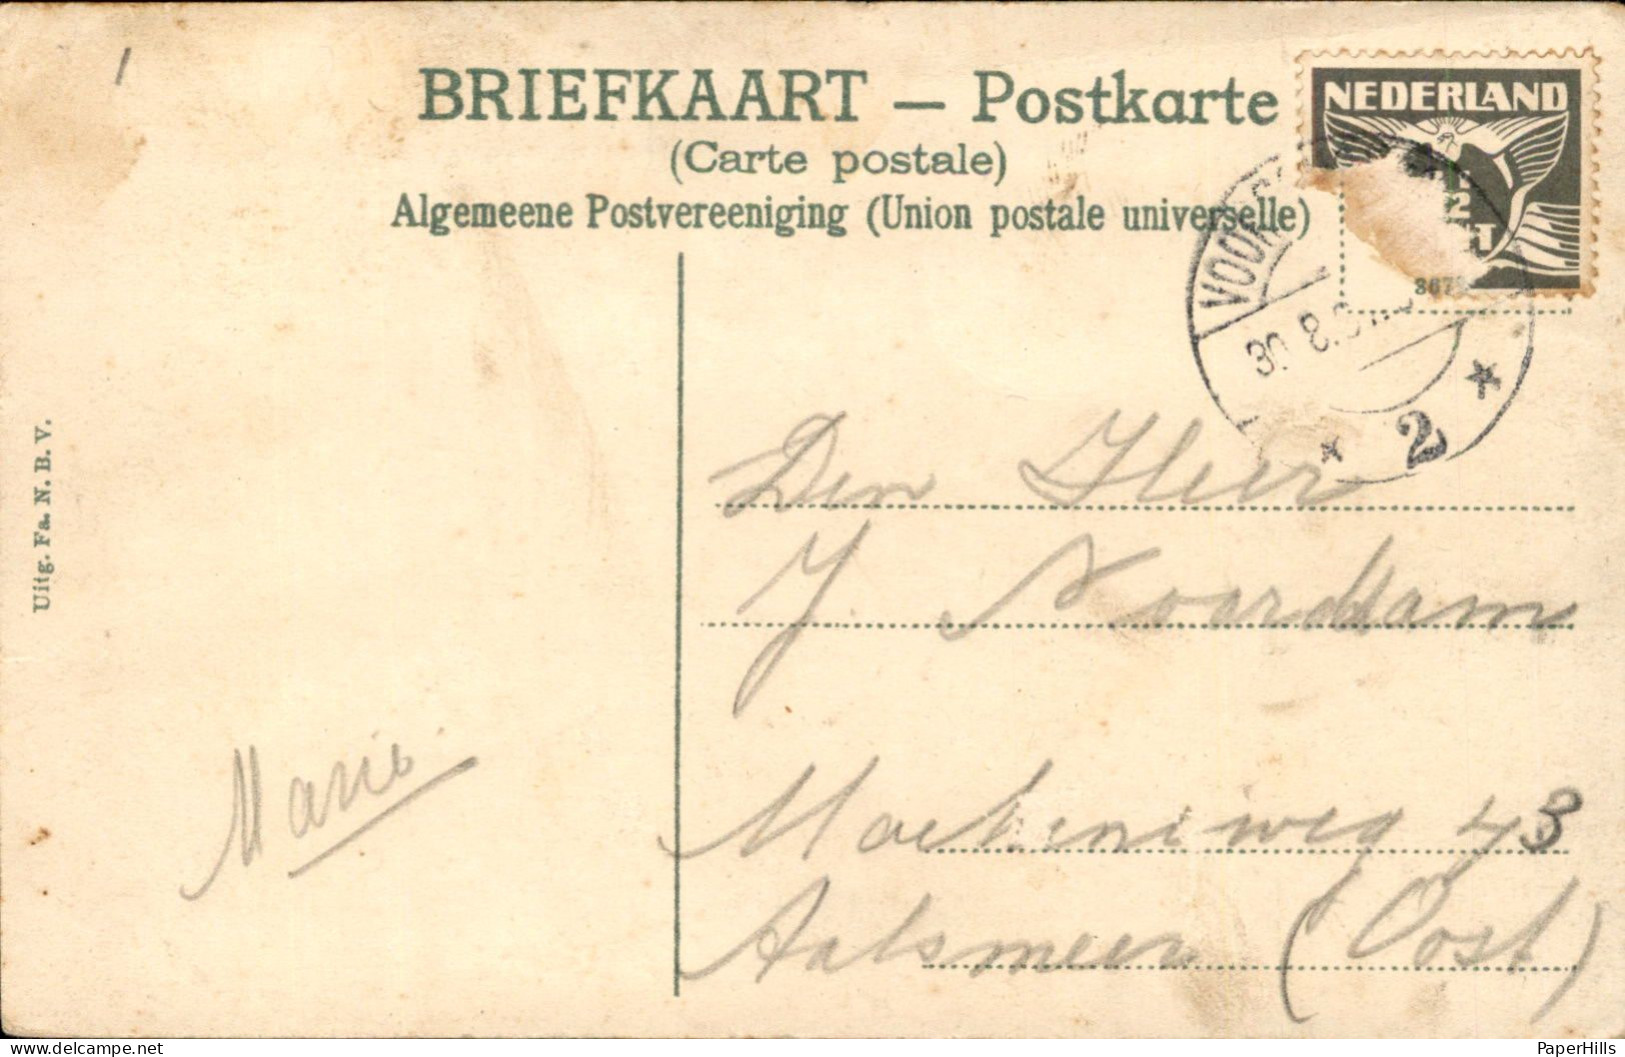 1
BRIEFKAART — Postkarte
(Carte postale)
Algemeene Postvereeniging (Union postale universelle)
NEDERLAND
2
3678
30 8
2
Uitg. Fa. N. B. V.
Den Heer
J. Noordam
Marie
43
Aalsmeer (Oost)
PaperHills